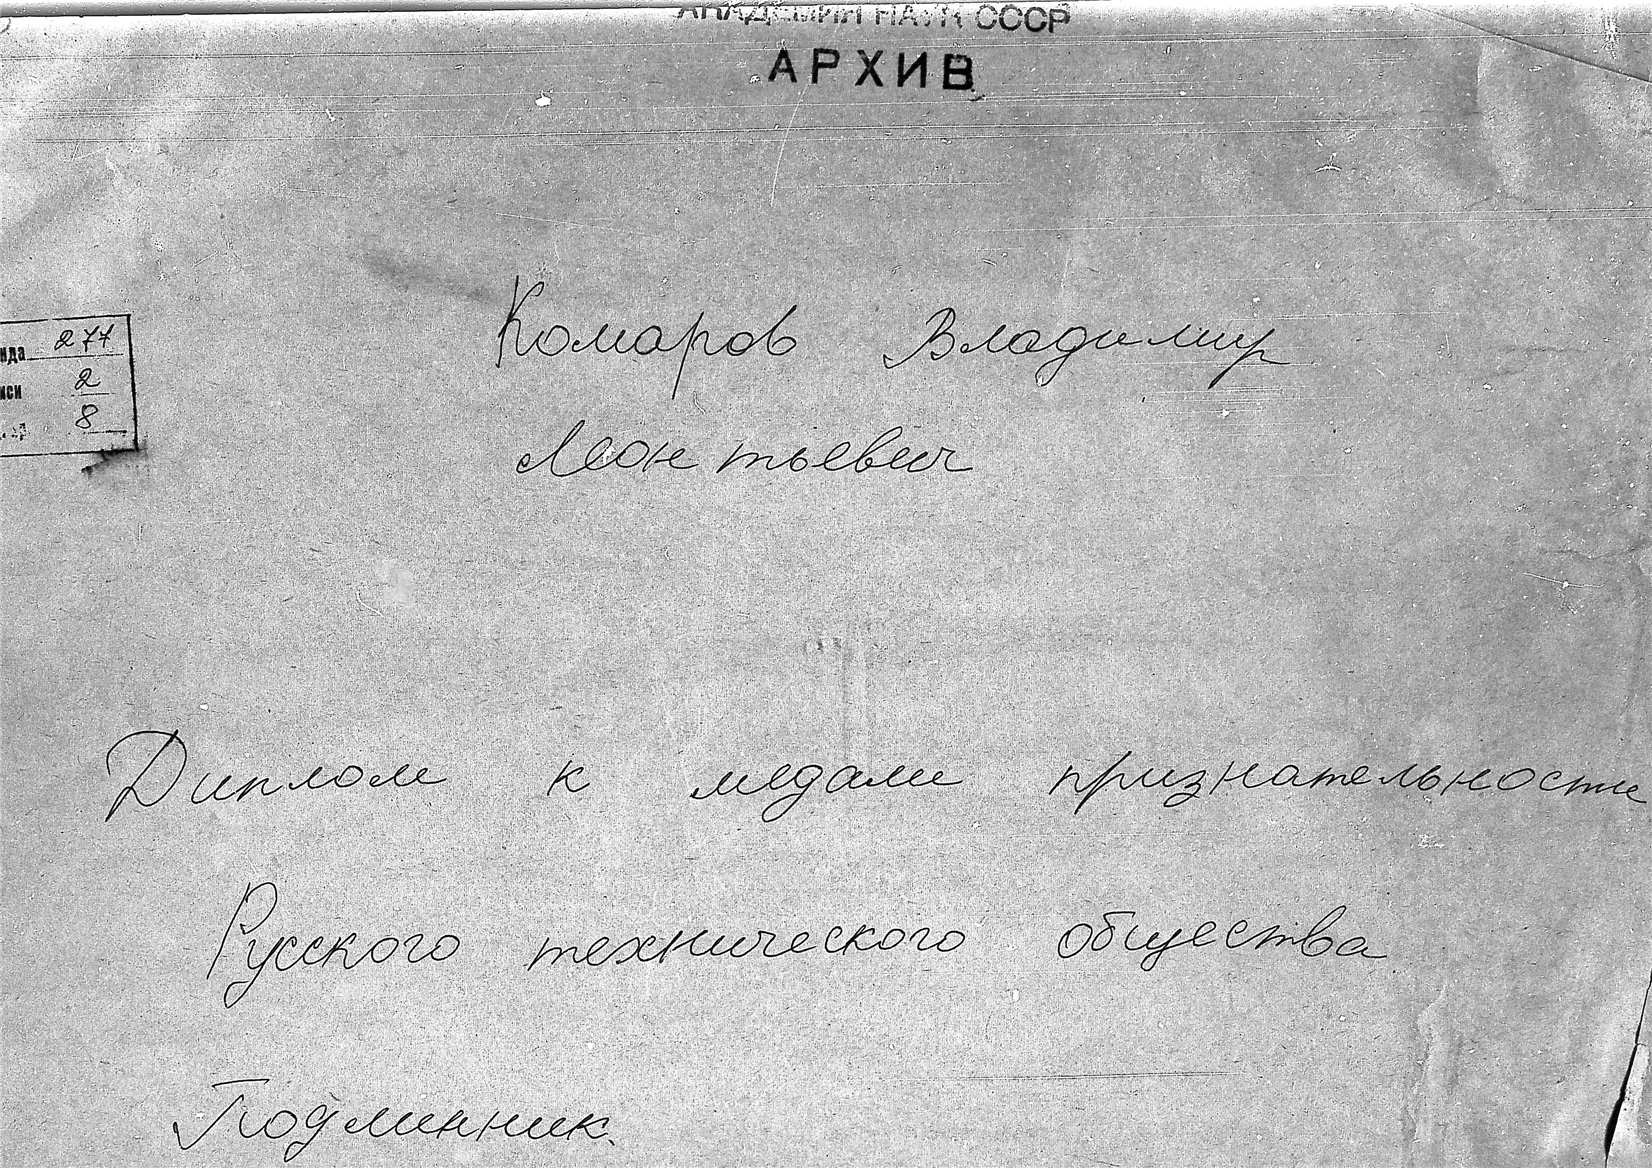 АКАДЕМИЯ НАУК СССР
АРХИВ
нда 277
иси 2
8
Комаров Владимир
Леонтьевич
Диплом к медали признательности
Русского технического общества
Подлинник.